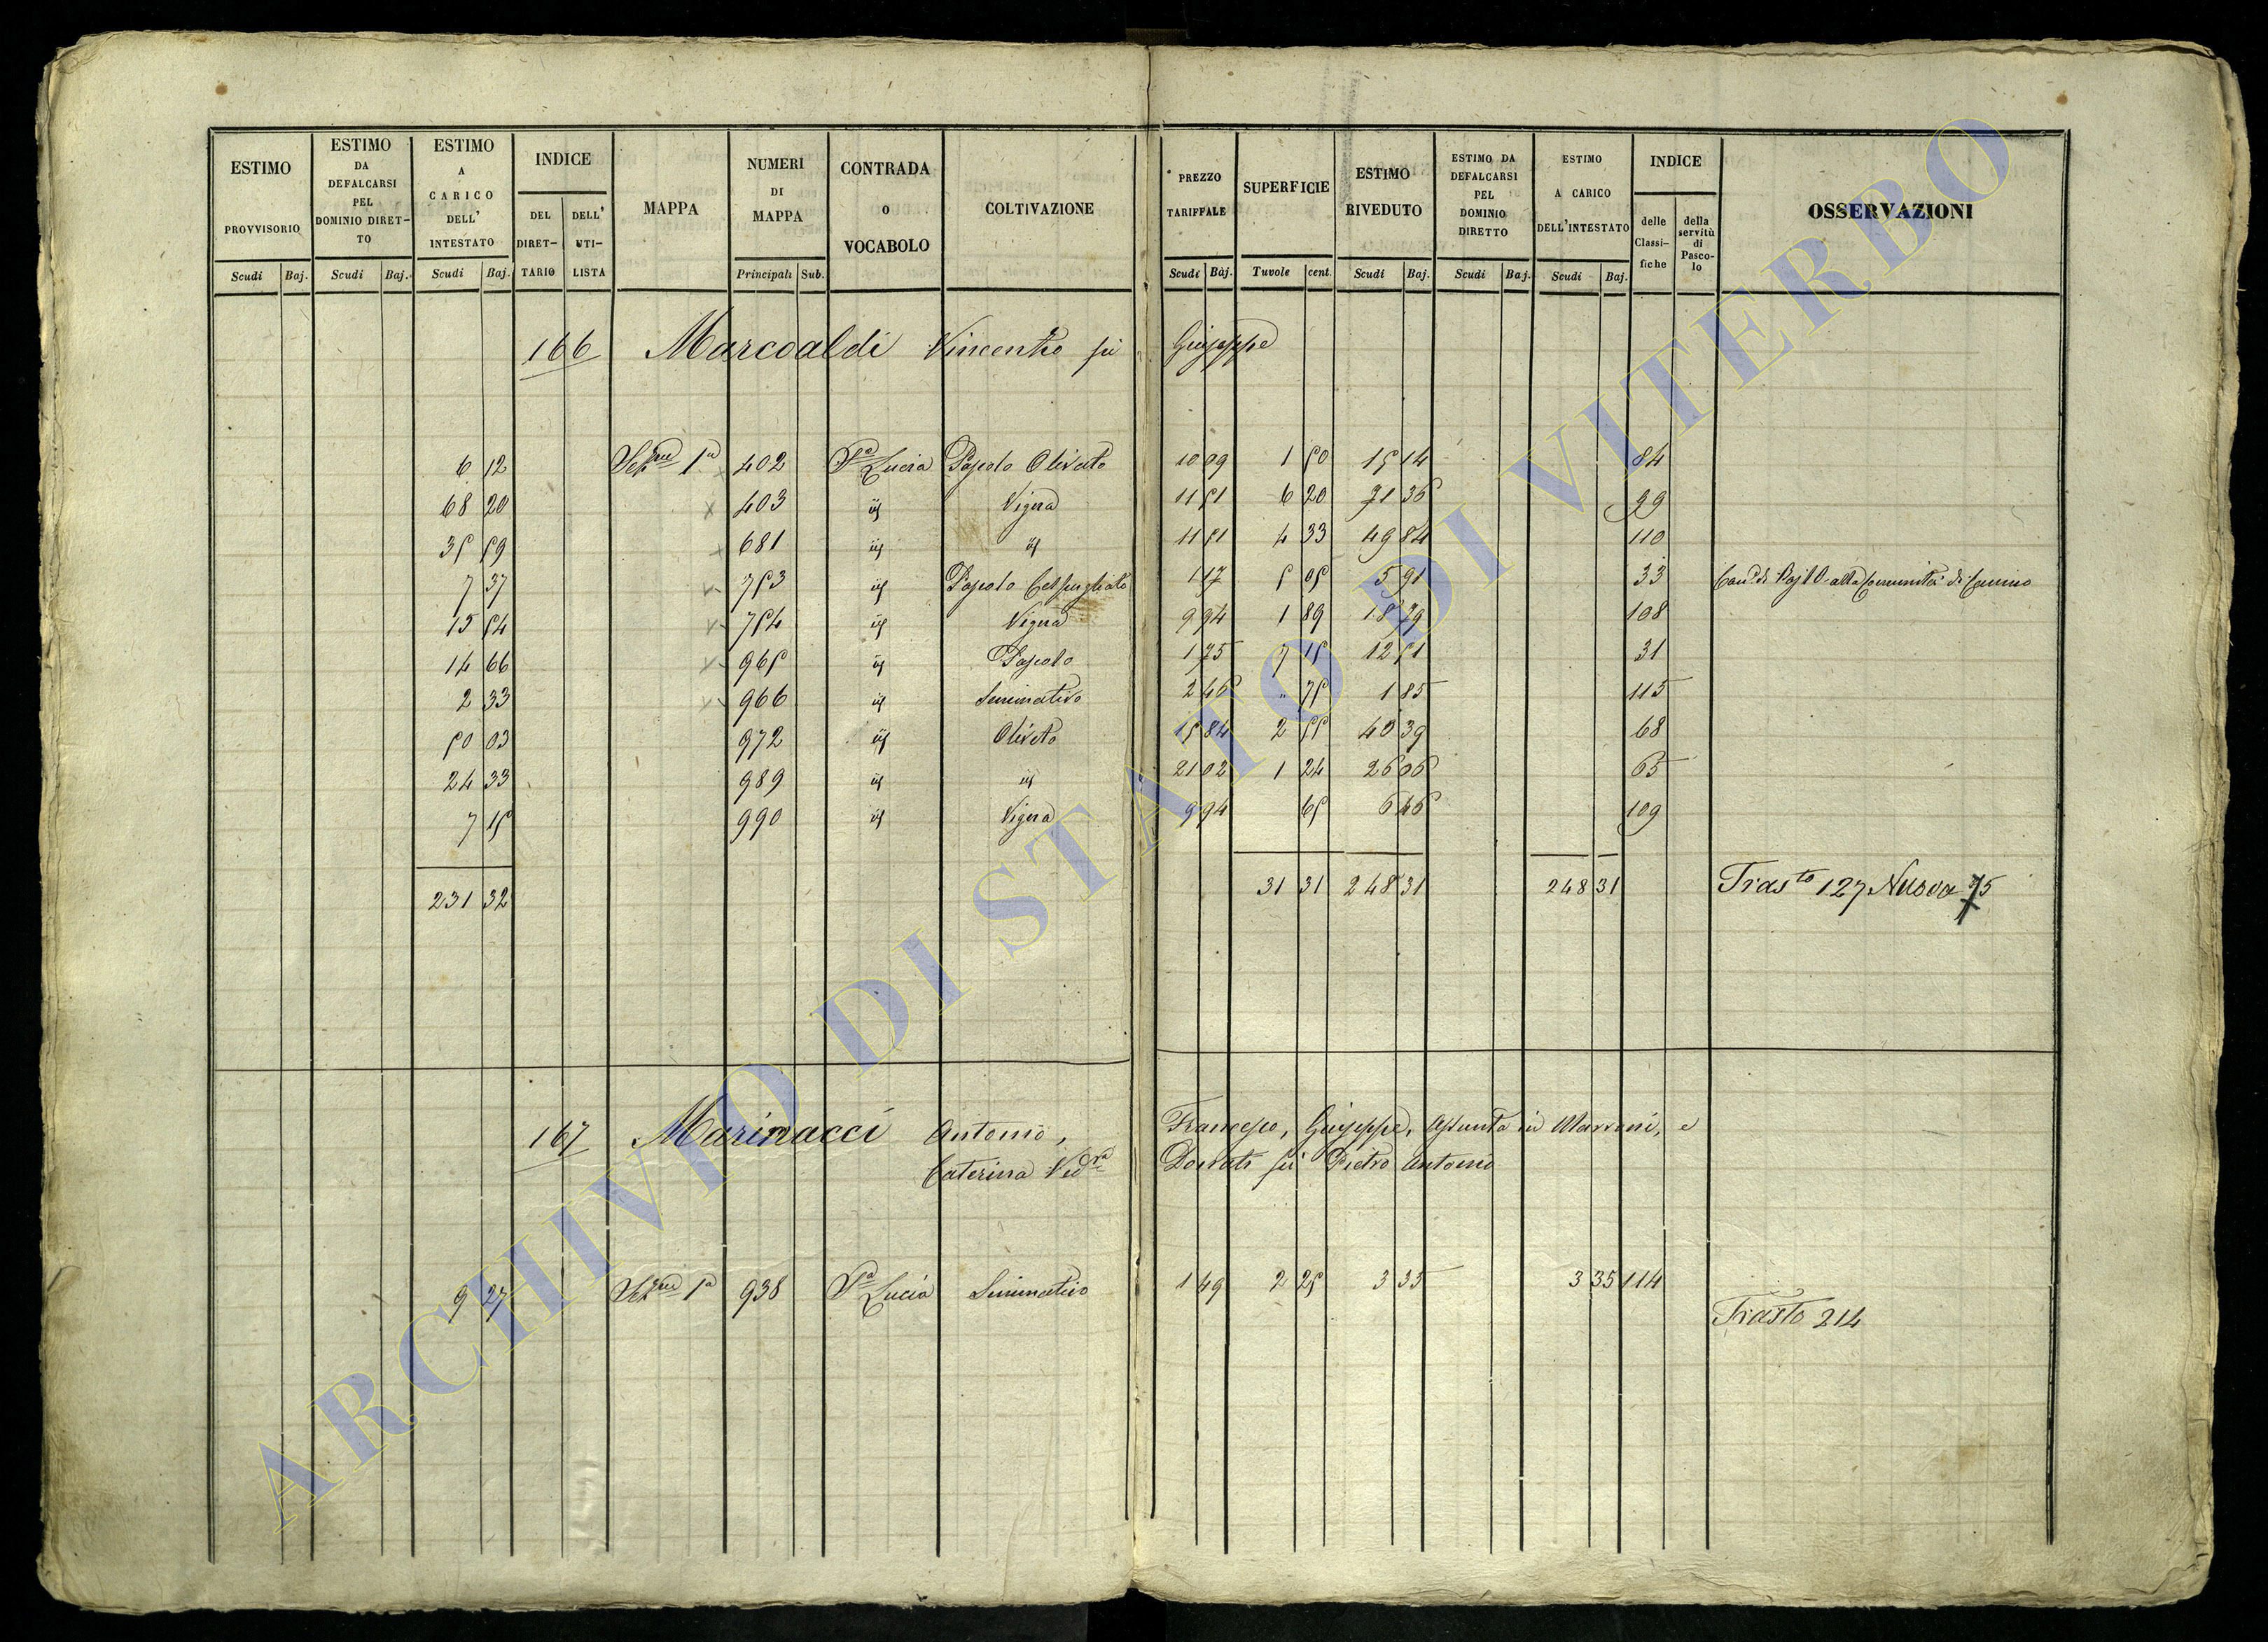 ESTIMO PROVVISORIO Scudi Baj. ESTIMO DA DEFALCARSI PEL DOMINIO DIRET-TO Scudi Baj. ESTIMO A CARICO DELL' INTESTATO Scudi Baj. INDICE DEL DIRET-TARIO DELL' UTI-LISTA MAPPA NUMERI DI MAPPA Principali Sub. CONTRADA O VOCABOLO COLTIVAZIONE PREZZO TARIFFALE Scudi Baj. SUPERFICIE Tavole cent. ESTIMO RIVEDUTO Scudi Baj. ESTIMO DA DEFALCARSI PEL DOMINIO DIRETTO Scudi Baj. ESTIMO A CARICO DELL'INTESTATO Scudi Baj. INDICE delle Classi-fiche della servitù di Pasco-lo OSSERVAZIONI
166 Marcoaldi Vincenzo fù Giuseppe
6 12 Sezne 1a 402 Sa Lucia Pascolo Olivato 10 09 1 50 15 14 84
68 20 403 id Vigna 11 51 6 20 71 36 99
35 59 681 id id 11 51 4 33 49 84 110
7 37 753 id Pascolo Cespugliato 1 17 5 05 5 91 33 alla Comunità di Canino
15 54 754 id Vigna 9 94 1 89 18 79 108
14 66 965 id Pascolo 1 75 7 15 12 51 31
2 33 966 id Seminativo 2 46 " 75 1 85 115
50 03 972 id Oliveto 15 84 2 55 40 39 68
24 33 989 id id 21 02 1 24 26 06 65
7 15 990 id Vigna 9 94 65 6 46 109
231 32 31 31 248 31 248 31 Trasto 127 Nuova 75
167 Marinacci Antonio, Francesco, Giuseppe, Assunta in Marroni, e
Caterina Veda Donati fù Pietro Antonio
9 27 Sezne 1a 938 Sa Lucia Seminativo 1 49 2 25 3 35 3 35 114
Trasto 214
ARCHIVIO DI STATO DI VITERBO